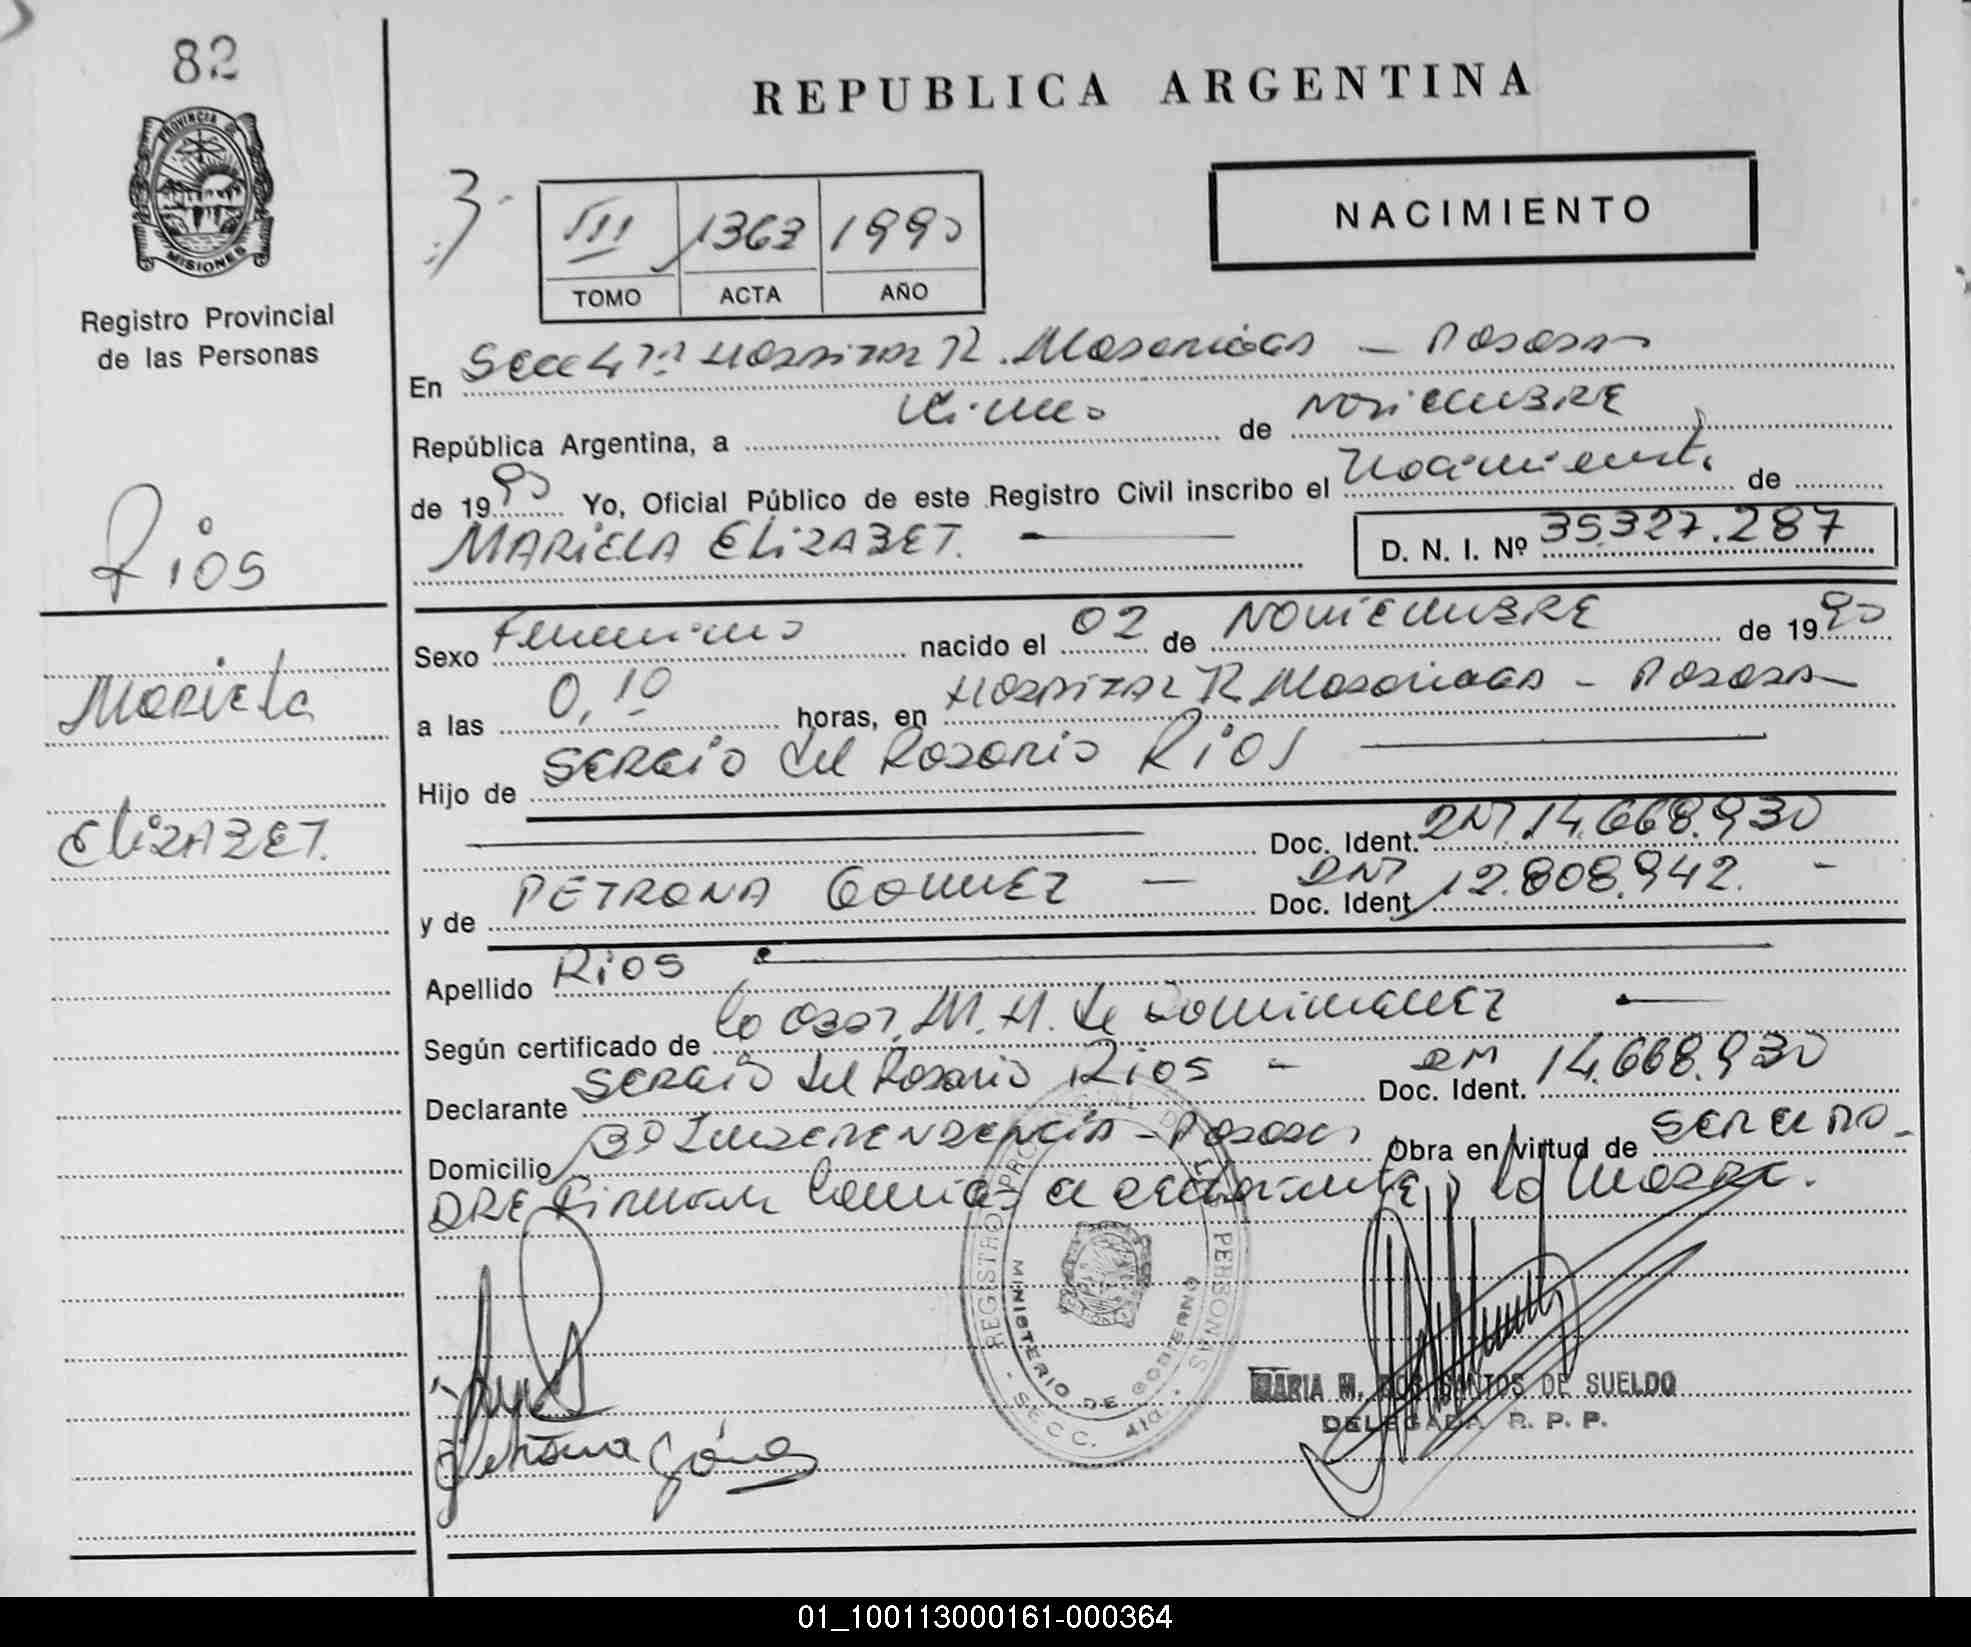 82
REPUBLICA ARGENTINA
PROVINCIA DE
MISIONES
Registro Provincial
de las Personas
3
III 1363 1990
TOMO ACTA AÑO
NACIMIENTO
En Secc 4ta Hospital R. Madariaga - Posadas
República Argentina, a de NOVIEMBRE
de 1990 Yo, Oficial Público de este Registro Civil inscribo el Nacimiento de
MARIELA ELIZABET. D. N. I. Nº 35.327.287
Rios
Mariela
ELIZABET.
Sexo Femenino nacido el 02 de NOVIEMBRE de 1990
a las 0,10 horas, en Hospital R Madariaga - Posadas
Hijo de SERGIO del Rosario Rios
Doc. Ident. DNI 14.668.930
y de PETRONA GOMEZ - Doc. Ident. DNI 12.808.942. -
Apellido Rios
Según certificado de la Obst. M. H. de Dominguez
Declarante SERGIO del Rosario Rios - Doc. Ident. DNI 14.668.930
Domicilio Bº INDEPENDENCIA - Posadas Obra en virtud de SER EL PA-
DRE Firman conmigo el declarante y la madre.
REGISTRO PROVINCIAL DE LAS PERSONAS
MINISTERIO DE GOBIERNO
- SECC. 4ta. DIT.
Petrona Gómez
MARIA M. DOS SANTOS DE SUELDO
DELEGADA R. P. P.
01_100113000161-000364